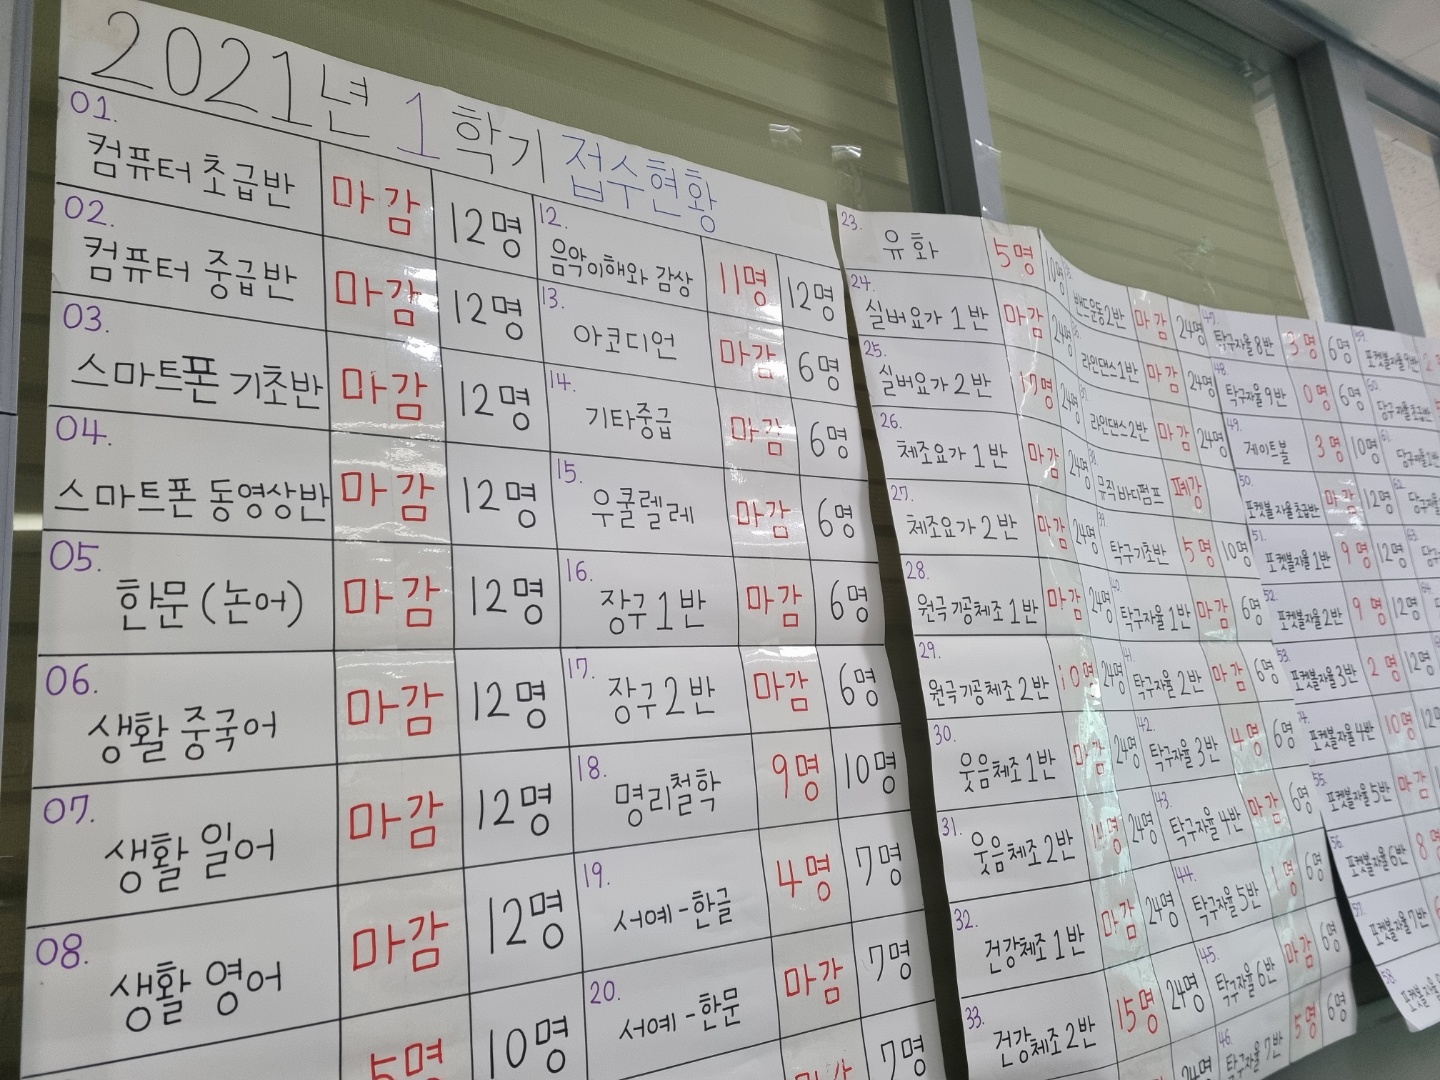 2021년 1학기 접수현황
01. 컴퓨터 초급반 마감 12명
02. 컴퓨터 중급반 마감 12명
03. 스마트폰 기초반 마감 12명
04. 스마트폰 동영상반 마감 12명
05. 한문(논어) 마감 12명
06. 생활 중국어 마감 12명
07. 생활 일어 마감 12명
08. 생활 영어 마감 12명
5명 10명
12. 음악이해와 감상 11명 12명
13. 아코디언 마감 6명
14. 기타중급 마감 6명
15. 우쿨렐레 마감 6명
16. 장구 1반 마감 6명
17. 장구 2반 마감 6명
18. 명리철학 9명 10명
19. 서예-한글 4명 7명
20. 서예-한문 마감 7명
마감 7명
23. 유화 5명 10명
24. 실버요가 1반 마감 24명
25. 실버요가 2반 24명
26. 체조요가 1반 마감 24명
27. 체조요가 2반 마감 24명
28. 원극기공체조 1반 마감 24명
29. 원극기공체조 2반 10명 24명
30. 웃음체조 1반 마감 24명
31. 웃음체조 2반 24명
32. 건강체조 1반 마감 24명
33. 건강체조 2반 15명 24명
24명
밴드운동2반 마감 24명
라인댄스1반 마감 24명
라인댄스2반 마감 24명
뮤직바디펌프 폐강
39. 탁구기초반 5명 10명
40. 탁구자율 1반 마감 6명
41. 탁구자율 2반 마감 6명
42. 탁구자율 3반 4명 6명
43. 탁구자율 4반 마감 6명
44. 탁구자율 5반 6명
45. 탁구자율 6반 마감 6명
46. 탁구자율 7반 5명 6명
47. 탁구자율 8반 3명 6명
48. 탁구자율 9반 0명 6명
49. 게이트볼 3명 10명
50. 포켓볼 자율 초급반 마감 12명
51. 포켓볼자율 1반 9명 12명
52. 포켓볼자율 2반 9명 12명
53. 포켓볼자율 3반 2명 12명
포켓볼자율 4반 10명
55. 포켓볼자율 5반 마감
56. 포켓볼자율 6반
57. 포켓볼자율 7반
58.
59. 포켓볼자율 9반
60. 당구자율초급반
61.
62.
63.